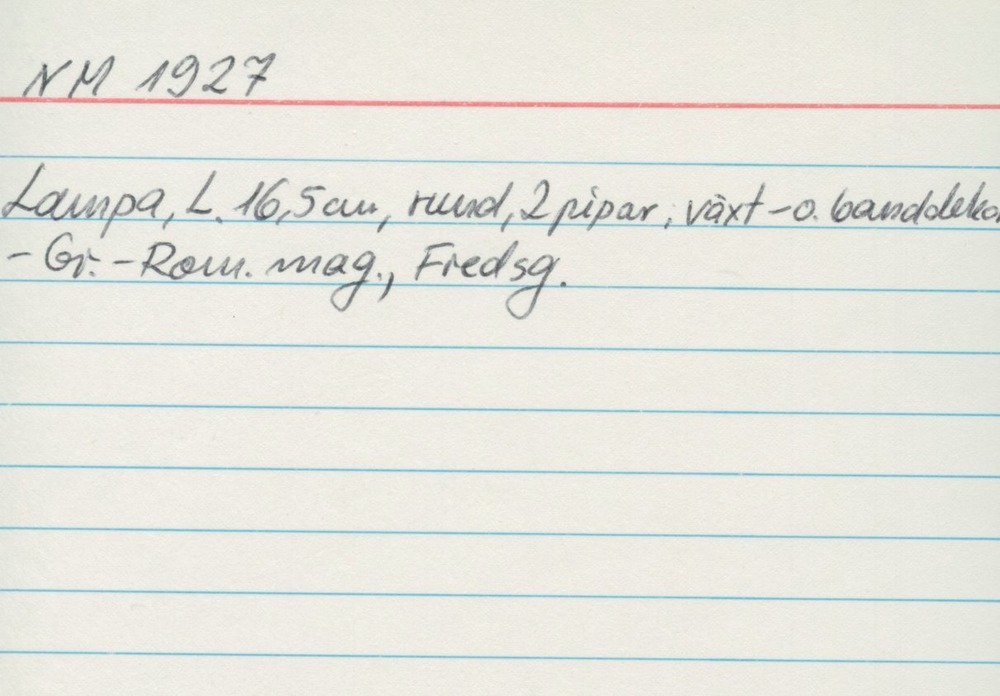 NM 1927
Lampa, L. 16,5 cm, rund, 2 pipar; växt-o. banddekor
- Gr.-Rom. mag., Fredsg.